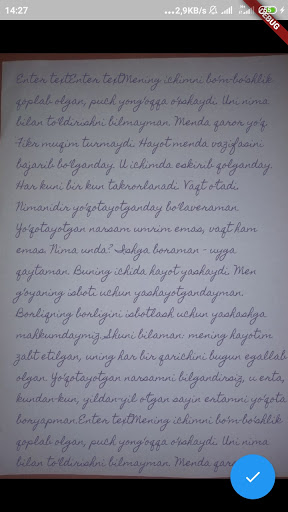 14:27
...2,9KB/s
DEBUG
Enter textEnter textMening ichimni bo'm-bo'shlik
qoplab olgan, puch yong'oqqa o'xshaydi. Uni nima
bilan to'ldirishni bilmayman. Menda qaror yo'q.
Fikr muqim turmaydi. Hayot menda vazifasini
bajarib bo'lganday. U ichimda eskirib qolganday.
Har kuni bir kun takrorlanadi. Vaqt o'tadi.
Nimanidir yo'qotayotganday bo'laveraman.
Yo'qotayotgan narsam umrim emas, vaqt ham
emas. Nima unda? Ishga boraman - uyga
qaytaman. Buning ichida hayot yashaydi. Men
g'oyaning isboti uchun yashayotgandayman.
Borliqning borligini isbotlash uchun yashashga
mahkumdaymiz.Shuni bilaman: mening hayotim
zabt etilgan, uning har bir qarichini bugun egallab
olgan. Yo'qotayotgan narsamni bilgandirsiz, u erta,
kundan-kun, yildan-yil o'tgan sayin ertamni yo'qota
boryapman.Enter textMening ichimni bo'm-bo'shlik
qoplab olgan, puch yong'oqqa o'xshaydi. Uni nima
bilan to'ldirishni bilmayman. Menda qaror